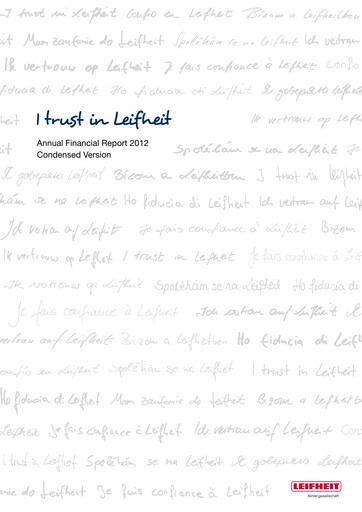 I trust in Leifheit Confio en Leifheit Bizom a
it Mam zaufanie do Leifheit Spoléhám se na Leifheit Ich vertrau
Ik vertrouw op Leifheit Je fais confiance à Leifheit Confio
fiducia di Leifheit Ho fiducia di Leifheit Я доверяю Leifhei
heit I trust in Leifheit Ik vertrouw op Leif
Annual Financial Report 2012
Condensed Version
Spoléhám se na Leifheit Je
Я доверяю Leifheit Bizom a Leifheitben I trust in Leifheit
hám se na Leifheit Ho fiducia di Leifheit Ich vertrau auf Leif
Ich vertrau auf Leifheit Je fais confiance à Leifheit Bizom
Ik vertrouw op Leifheit I trust in Leifheit Je fais confiance à Leif
Ik vertrouw op Leifheit Spoléhám se na Leifheit Ho fiducia di
Je fais confiance à Leifheit Ich vertrau auf Leifheit Я
vertrau auf Leifheit Bizom a Leifheitben Ho fiducia di Leif
onfio en Leifheit Spoléhám se na Leifheit I trust in Leifheit
Ho fiducia di Leifheit Mam zaufanie do Leifheit Bizom a Leifheitb
Leifheit Je fais confiance à Leifheit Ich vertrau auf Leifheit
I trust à Leifheit Spoléhám se na Leifheit Я доверяю Leifheit
anie do Leifheit Je fais confiance à Leifheit
LEIFHEIT
Aktiengesellschaft